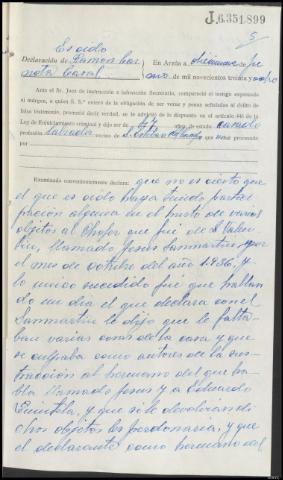 J.6.351.899
5
Es oido
Declaración de Ramon Bar
En Arzúa a diecinueve de ju
nio de mil novecientos treinta y ocho
Ante el Sr. Juez de instrucción e infrascrito Secretario, compareció el testigo expresado
al márgen, a quien S. S.ª enteró de la obligación de ser veraz y penas señaladas al delito de
falso testimonio, prometió decir verdad, se le advirtió de lo dispuesto en el artículo 446 de la
Ley de Enjuiciamiento criminal y dijo ser de 47 años, de estado casado
profesión labrador vecino de S. Esteban que
por
Examinado convenientemente declara: que no es cierto que
el que es oido haya tenido partici
pación alguna en el hurto de varios
objetos al chofer que fué de
llamado Jesus Sanmartin, por
el mes de octubre del año 1.936, y
lo unico sucedido fué que hallan
do un dia el que declara con el
Sanmartin le dijo que le falta
ban varias cosas de la casa y que
se culpaba como autores de la sus
tracción al hermano del que ha
bla llamado Jesus y a Eduardo
y que si le devolvian di
chos objetos les perdonaria, y que
el declarante como hermano del